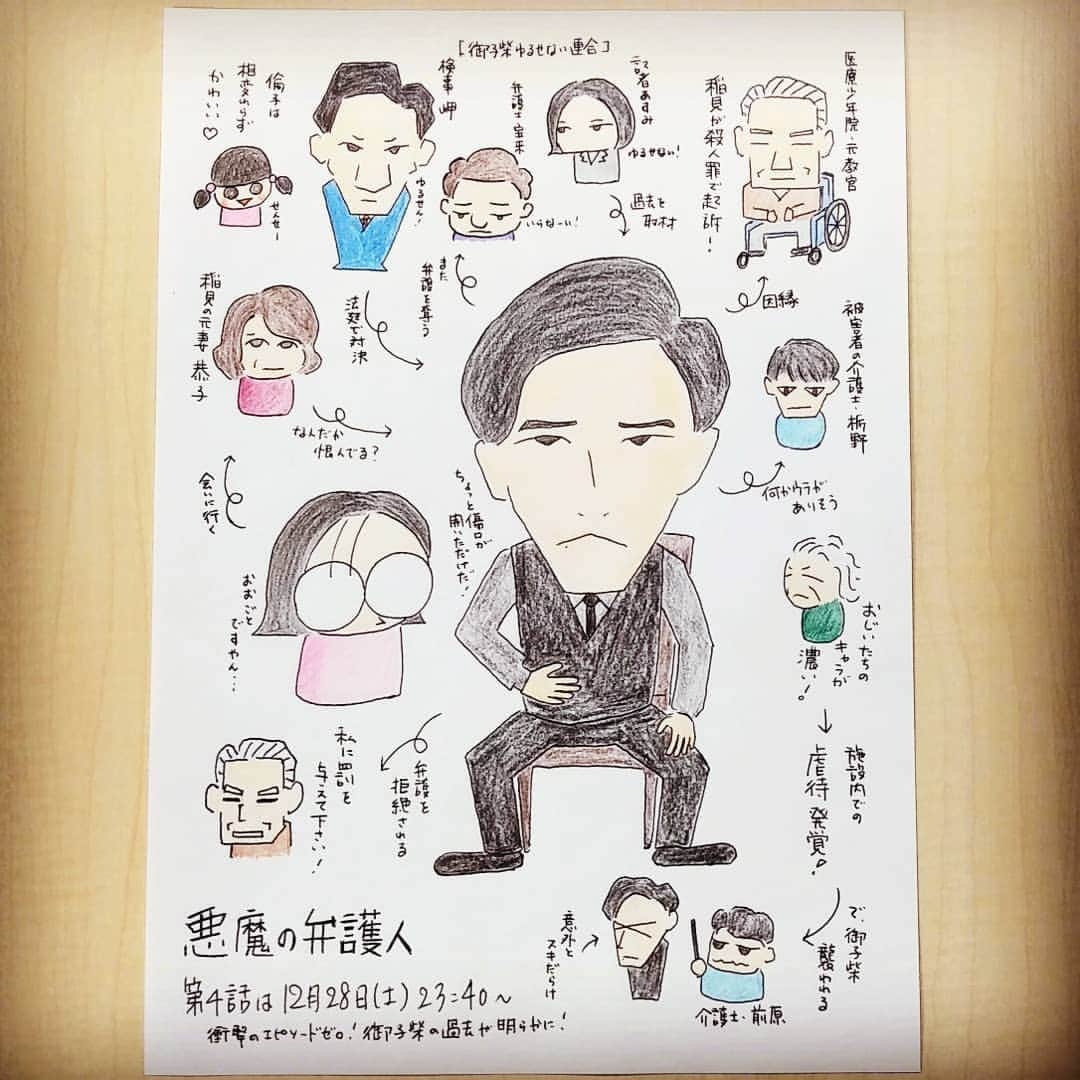 [御子柴ゆるせない連合]
倫子は
相変わらず
かわいい♡
せんせー
検事 岬
ゆるせん!
弁護士 宝来
いらなーい!
記者あすみ
ゆるせない!
過去を
取材
医療少年院・元教官
稲見が殺人罪で起訴!
因縁
また
弁護を奪う
法廷で対決
稲見の元妻 恭子
なんだか
恨んでる?
会いに行く
被害者の介護士・栃野
何かウラが
ありそう
ちょっと傷口が
開いただけだ!
おおごと
ですやん…
おじいたちの
キャラが
濃い!
施設内での
虐待発覚!
で、御子柴
襲われる
弁護を
拒絶される
私に罰を
与えて下さい!
意外と
スキだらけ
介護士・前原
悪魔の弁護人
第4話は12月28日(土)23:40〜
衝撃のエピソードゼロ!御子柴の過去が明らかに!